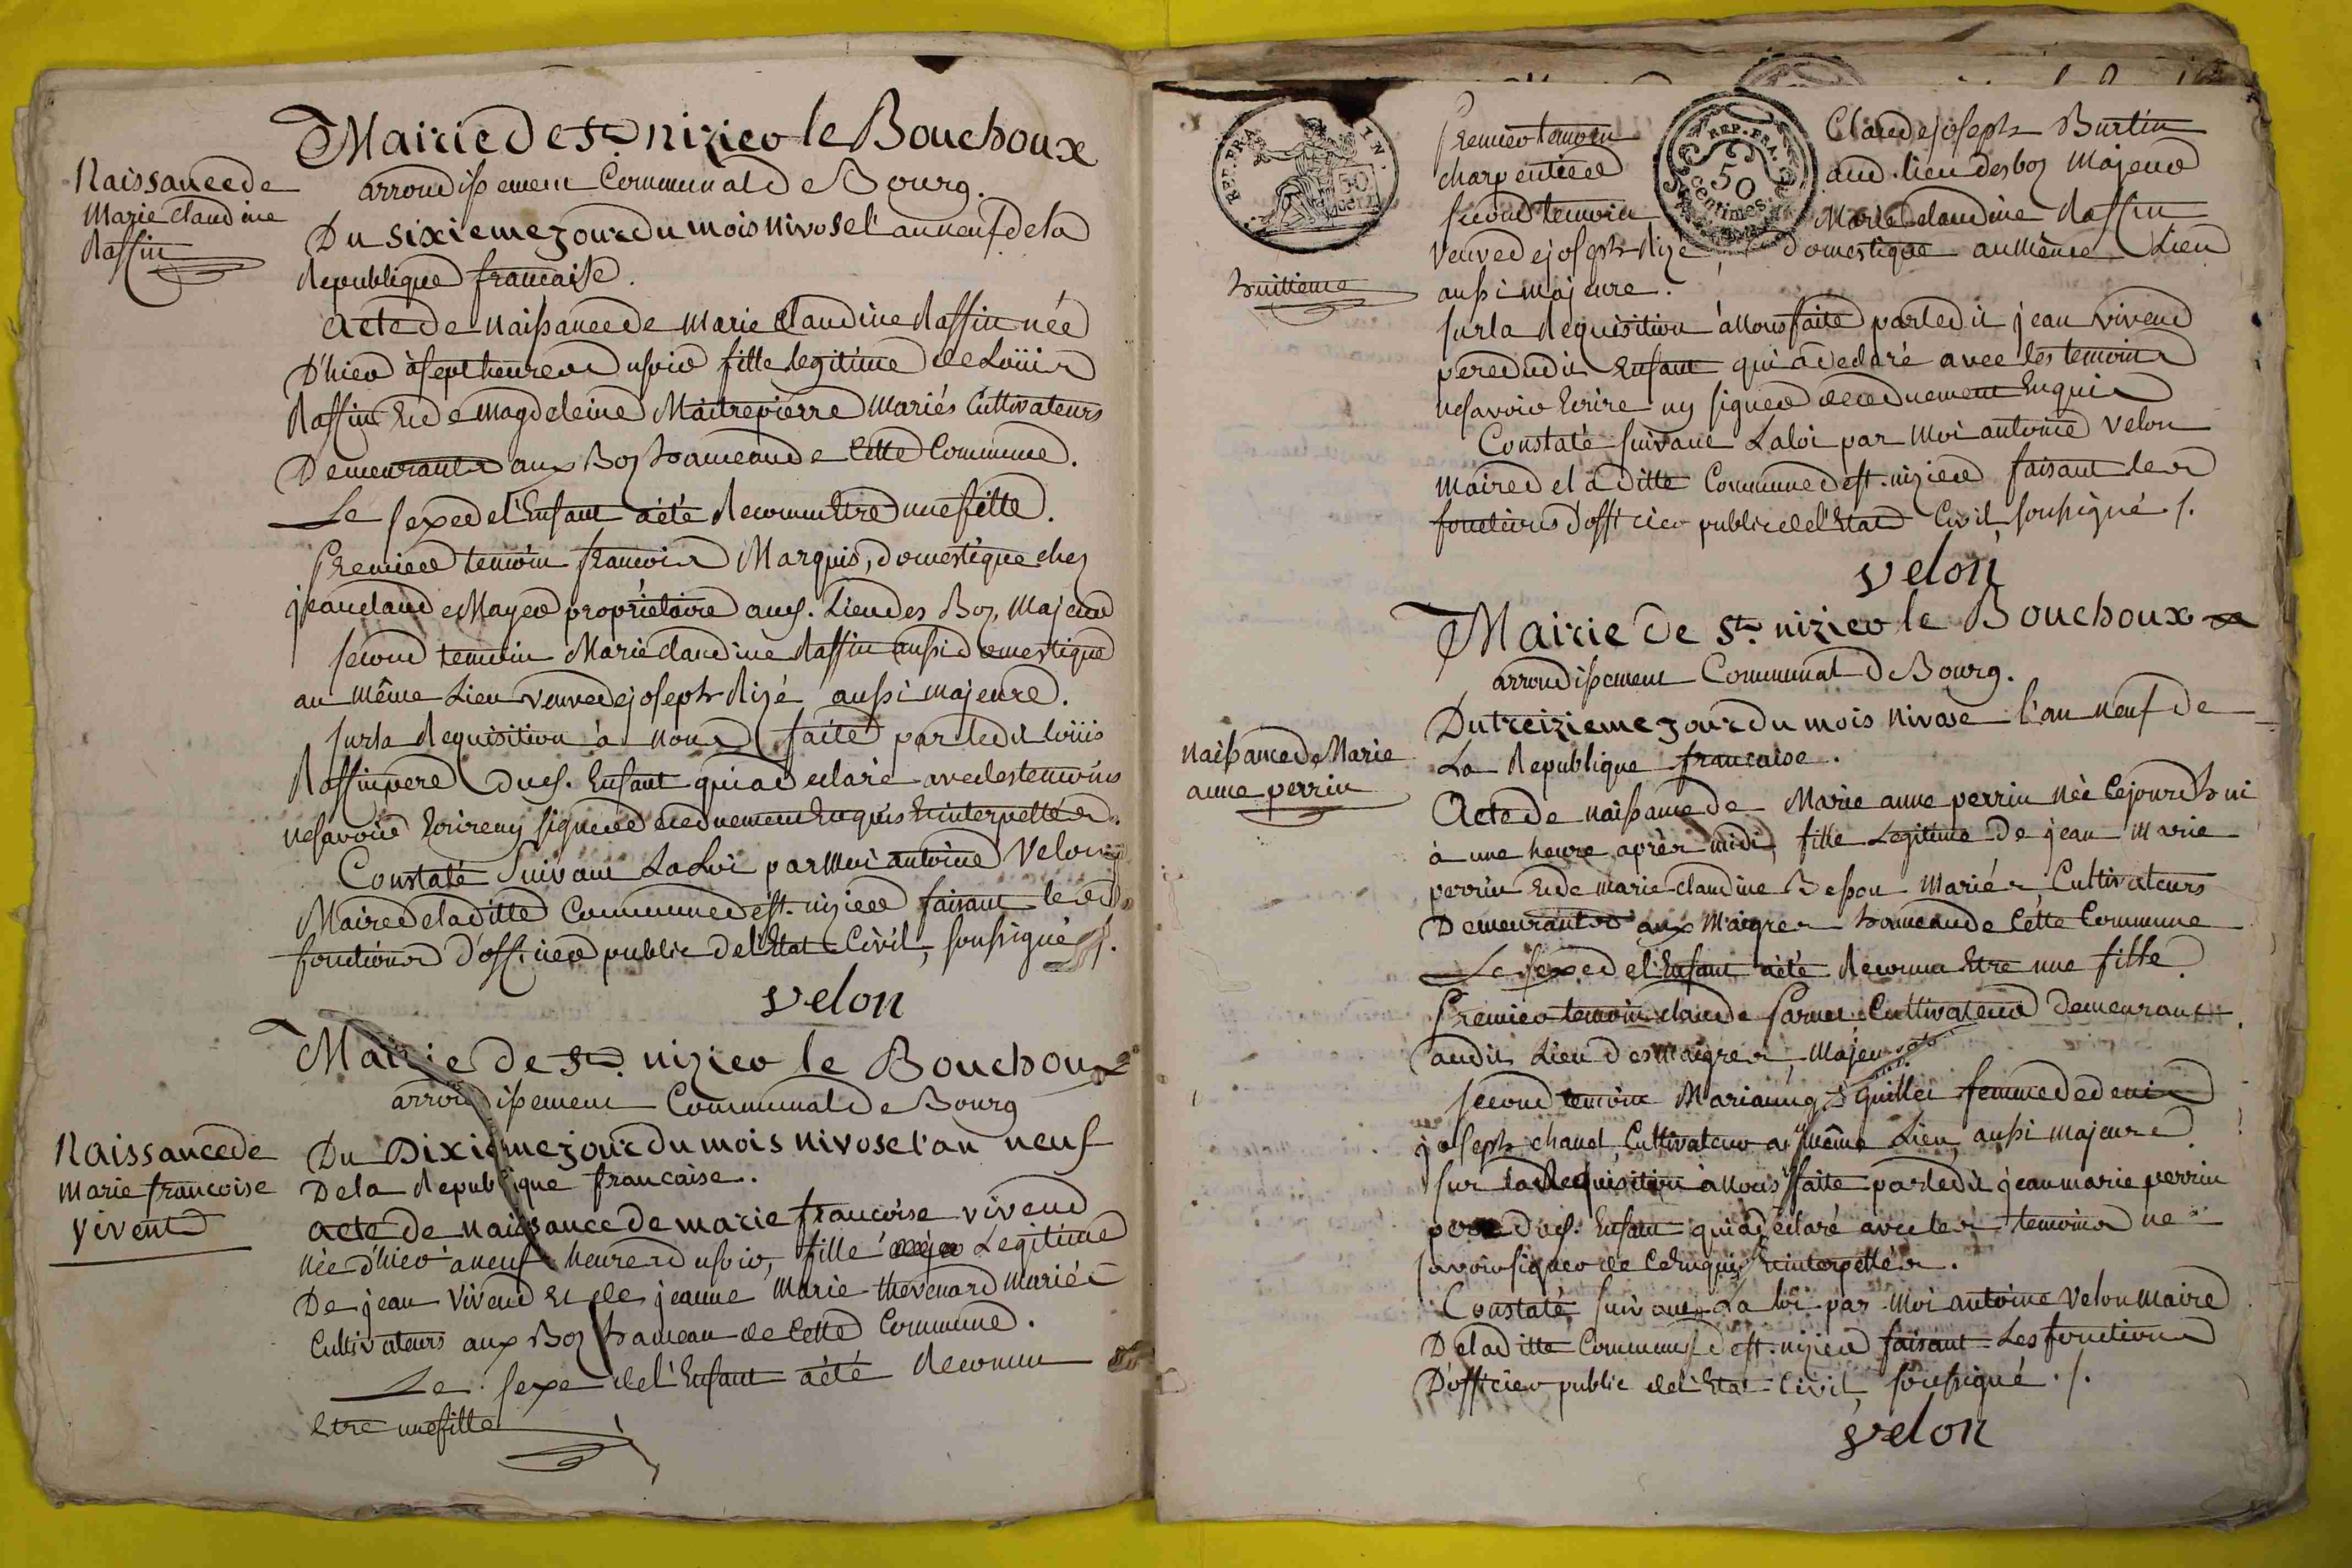 Naissance de
Marie Claudine
Raffin
Mairie de St. nizier le Bouchoux
arrondissement Communal de Bourg.
Du sixieme jour du mois nivose l'an neuf de la
Republique francaise.
Acte de naissance de Marie Claudine Raffin née
D'hier à sept heures du soir fille legitime de Loüis
Raffin Et de Magdeleine Maitrepierre mariés Cultivateurs
Demeurants aux Boz hameau de Cette Commune.
Le sexe de l'Enfant a été Reconnu Etre une fille.
Premier temoin francois Marquis, domestique chez
jean claude Mayer propriétaire aud. Lieu des Boz, Majeur
second temoin Marie claudine Raffin aussi domestique
au même Lieu veuve de joseph Rizé aussi majeure.
sur la Requisition à nous faite par ledit loüis
Raffin pere dud. Enfant qui a declaré avec les temoins
ne savoir Ecrire ny signer de ce duement Enquis Et interpellés.
Constaté suivant La Loi par Moi antoine Velon
Maire de la ditte Commune de st. nizier faisant les
fonctions d'officier public de l'Etat Civil, soussigné ./.
velon
Mairie de St. nizier le Bouchoux
arrondissement Communal de Bourg
Naissance de
marie francoise
vivent
Du Dixieme jour du mois nivose l'an neuf
De la Republique francaise.
acte de naissance de marie francoise vivend
née d'hier à neuf heures du soir, fille Legitime
De jean vivend Et de jeanne Marie thevenard mariés
Cultivateurs aux Boz hameau de Cette Commune.
Le sexe de l'Enfant a été Reconnu
Etre une fille
REP. FRA.
50
CENT
huitieme
REP. FRA.
50
centimes
Premier temoin Claude joseph Burtin
charpentier aud. lieu des boz Majeur
second temoin Marie claudine Raffin
veuve de joseph Rizé domestique au même Lieu
aussi majeure.
sur la Requisition à nous faite par ledit jean vivend
pere dudit Enfant qui a declaré avec les temoins
ne savoir Ecrire ny signer de ce duement Enquis
Constaté suivant La loi par Moi antoine Velon
maire de la ditte Commune de st. nizier faisant les
fonctions d'officier public de l'Etat Civil soussigné ./.
velon
Mairie de St. nizier le Bouchoux
arrondissement Communal de Bourg.
Du treizieme jour du mois nivose l'an neuf de
La Republique francaise.
naissance de Marie
anne perrin
Acte de naissance de Marie anne perrin née Cejourd'hui
à une heure après midi, fille Legitime de jean Marie
perrin Et de marie claudine Besson Mariés Cultivateurs
Demeurants aux Maigres hameau de Cette Commune
Le sexe de l'Enfant a été Reconnu Etre une fille
Premier temoin claude Cultivateur Demeurant
audit Lieu des Maigres, Majeur
second temoin femme de denis
joseph chanel, Cultivateur au même Lieu, aussi majeure
sur la Requisition à nous faite par ledit jean marie perrin
pere dud. Enfant qui a declaré avec les temoins ne
savoir signer de Ce Enquis Et interpellés.
Constaté suivant La loi par Moi antoine Velon Maire
De la ditte Commune de st. nizier faisant Les fonctions
D'officier public de l'Etat Civil soussigné ./.
velon